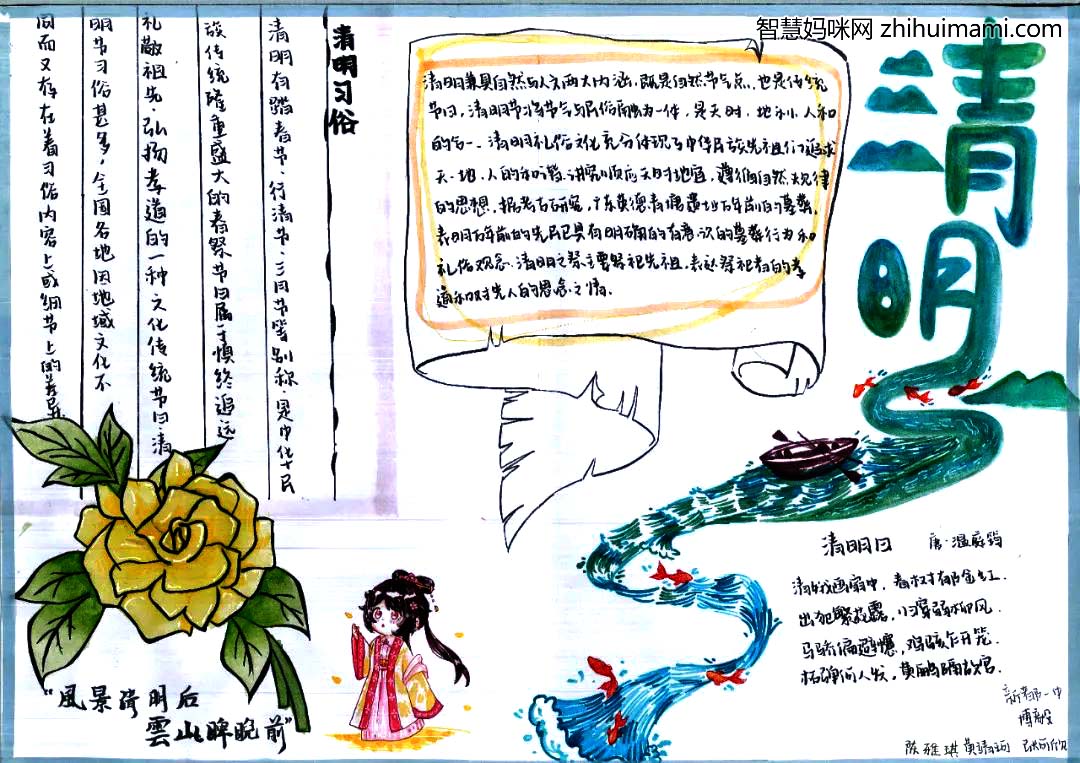 智慧妈咪网 zhihuimami.com
清明
清明习俗
清明有踏春节、行清节、三月节等别称，是中华民
族传统隆重盛大的春祭节日，属于慎终追远
礼敬祖先，弘扬孝道的一种文化传统节日，清
明节习俗甚多，全国各地因地域文化不
同而又存在着习俗内容上或细节上的差异
清明兼具自然与人文两大内涵，既是自然节气点，也是传统
节日，清明节将节气与民俗融为一体，是天时、地利、人和
的合一、清明礼俗文化充分体现了中华民族先祖们追求
天、地、人的和谐，讲究顺应天时地宜，遵循自然规律
的思想，据考古研究，广东英德青塘遗址万年前的墓葬，
表明万年前的先民已具有明确的有意识的墓葬行为和
礼俗观念。清明之祭主要祭祀先祖，表达祭祀者的孝
道和对先人的思念之情。
清明日 唐·温庭筠
清娥画扇中，春树郁金红。
出犯繁花露，归穿弱柳风。
马骄偏避幰，鸡骇乍开笼。
柘弹何人发，黄鹂隔故宫。
“風景清明后
雲山睥睨前”
陈雅琪